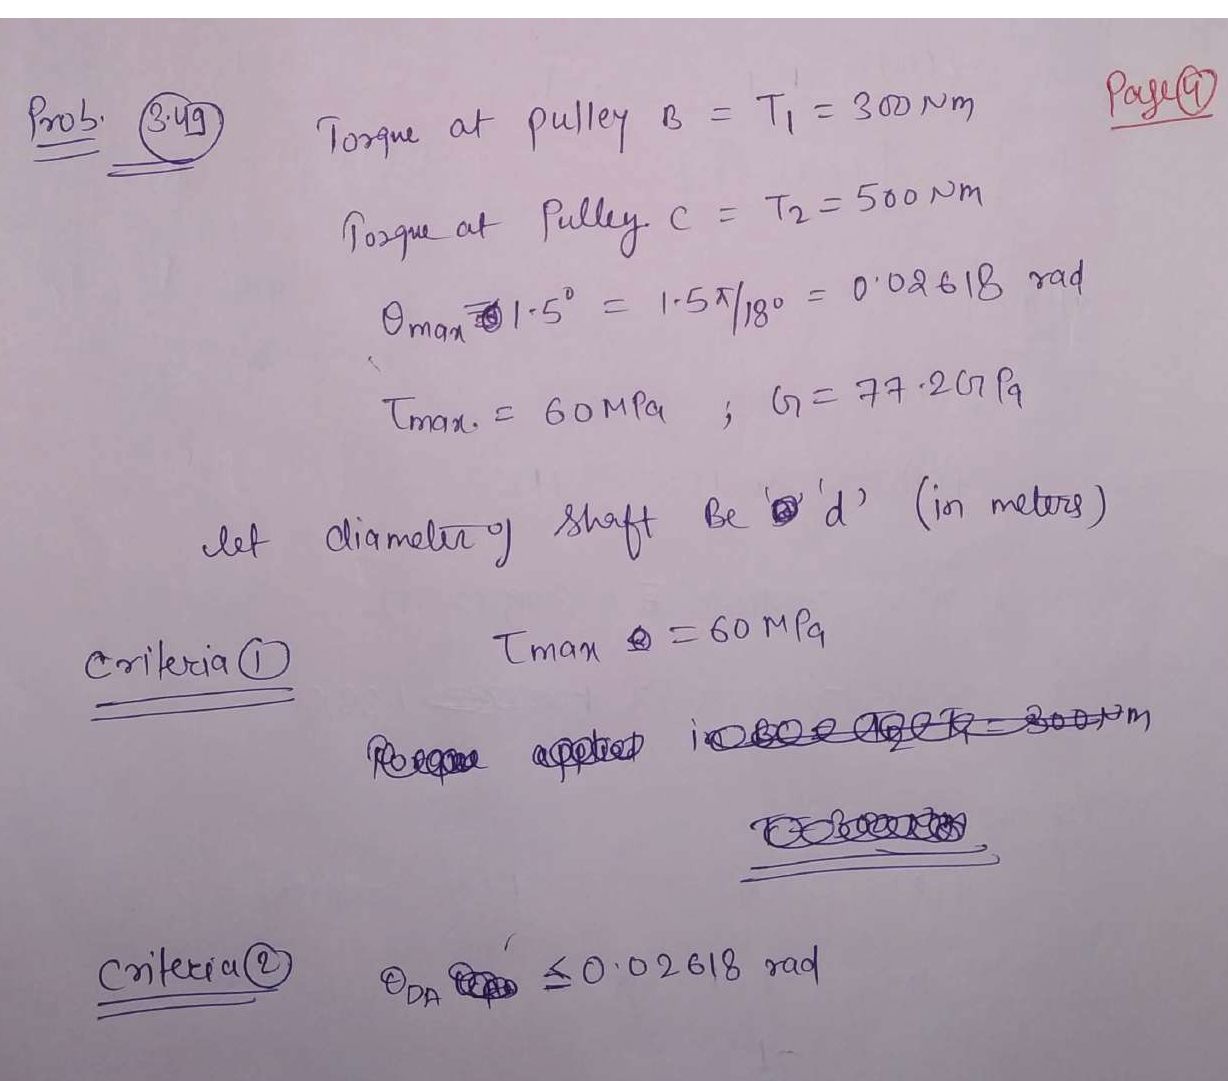 Prob. 3.49 Torque at pulley B = T1 = 300 Nm Page 9
Torque at Pulley C = T2 = 500 Nm
θman = 1.5° = 1.5π/180 = 0.02618 rad
τmax. = 60 MPa ; G = 77.2 GPa
let diameter of shaft Be 'd' (in meters)
Criteria 1 τman = 60 MPa
Criteria 2 θDA ≤ 0.02618 rad